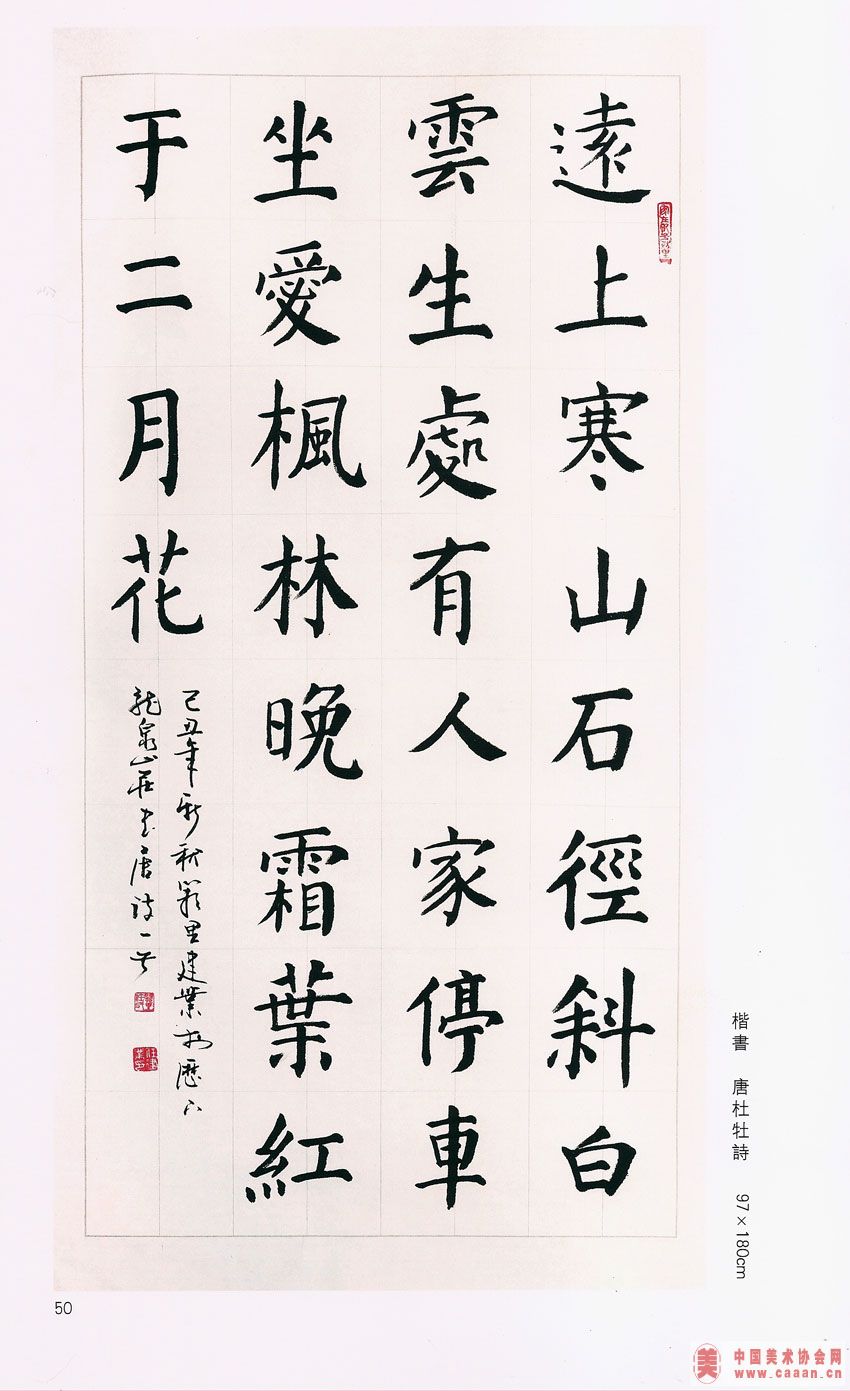 遠上寒山石徑斜白
雲生處有人家停車
坐愛楓林晚霜葉紅
于二月花
己丑年新秋嚴里建業於歷下
龍泉山莊书唐诗一首
楷書 唐杜牡詩 97×180cm
50
中国美术协会网
www.caaan.cn